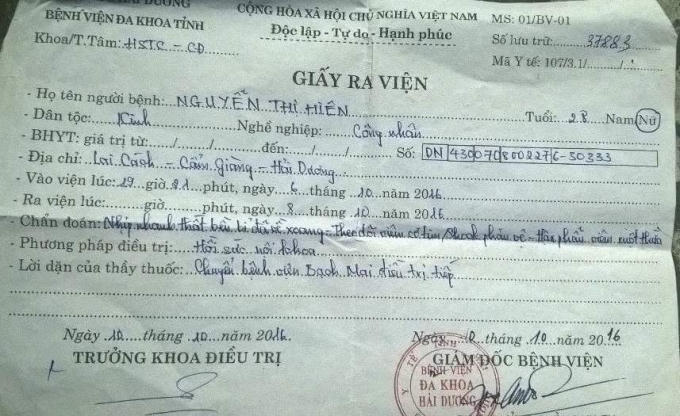 HẢI DƯƠNG
BỆNH VIỆN ĐA KHOA TỈNH
Khoa/T.Tâm: HSTC - CĐ
CỘNG HÒA XÃ HỘI CHỦ NGHĨA VIỆT NAM
Độc lập - Tự do - Hạnh phúc
MS: 01/BV-01
Số lưu trữ: 37883
Mã Y tế: 107/3.1/....../......
GIẤY RA VIỆN
- Họ tên người bệnh: NGUYỄN THỊ HIỀN
Tuổi: 28 Nam/Nữ
- Dân tộc: Kinh Nghề nghiệp: Công nhân
- BHYT: giá trị từ: ....../....../...... đến: ....../....../...... Số: DN 4 30 07 08002276-30333
- Địa chỉ: Lai Cách - Cẩm Giàng - Hải Dương
- Vào viện lúc: 19 giờ 21 phút, ngày 6 tháng 10 năm 2016
- Ra viện lúc: ...... giờ ...... phút, ngày 8 tháng 10 năm 2016
- Chẩn đoán: Nhịp nhanh thất - Theo dõi viêm cơ tim / Shock phản vệ - Hậu phẫu viêm ruột thừa
- Phương pháp điều trị: Hồi sức nội khoa
- Lời dặn của thầy thuốc: Chuyển bệnh viện Bạch Mai điều trị tiếp
Ngày 10 tháng 10 năm 2016
TRƯỞNG KHOA ĐIỀU TRỊ
Ngày 10 tháng 10 năm 2016
GIÁM ĐỐC BỆNH VIỆN
BỆNH VIỆN
ĐA KHOA
HẢI DƯƠNG